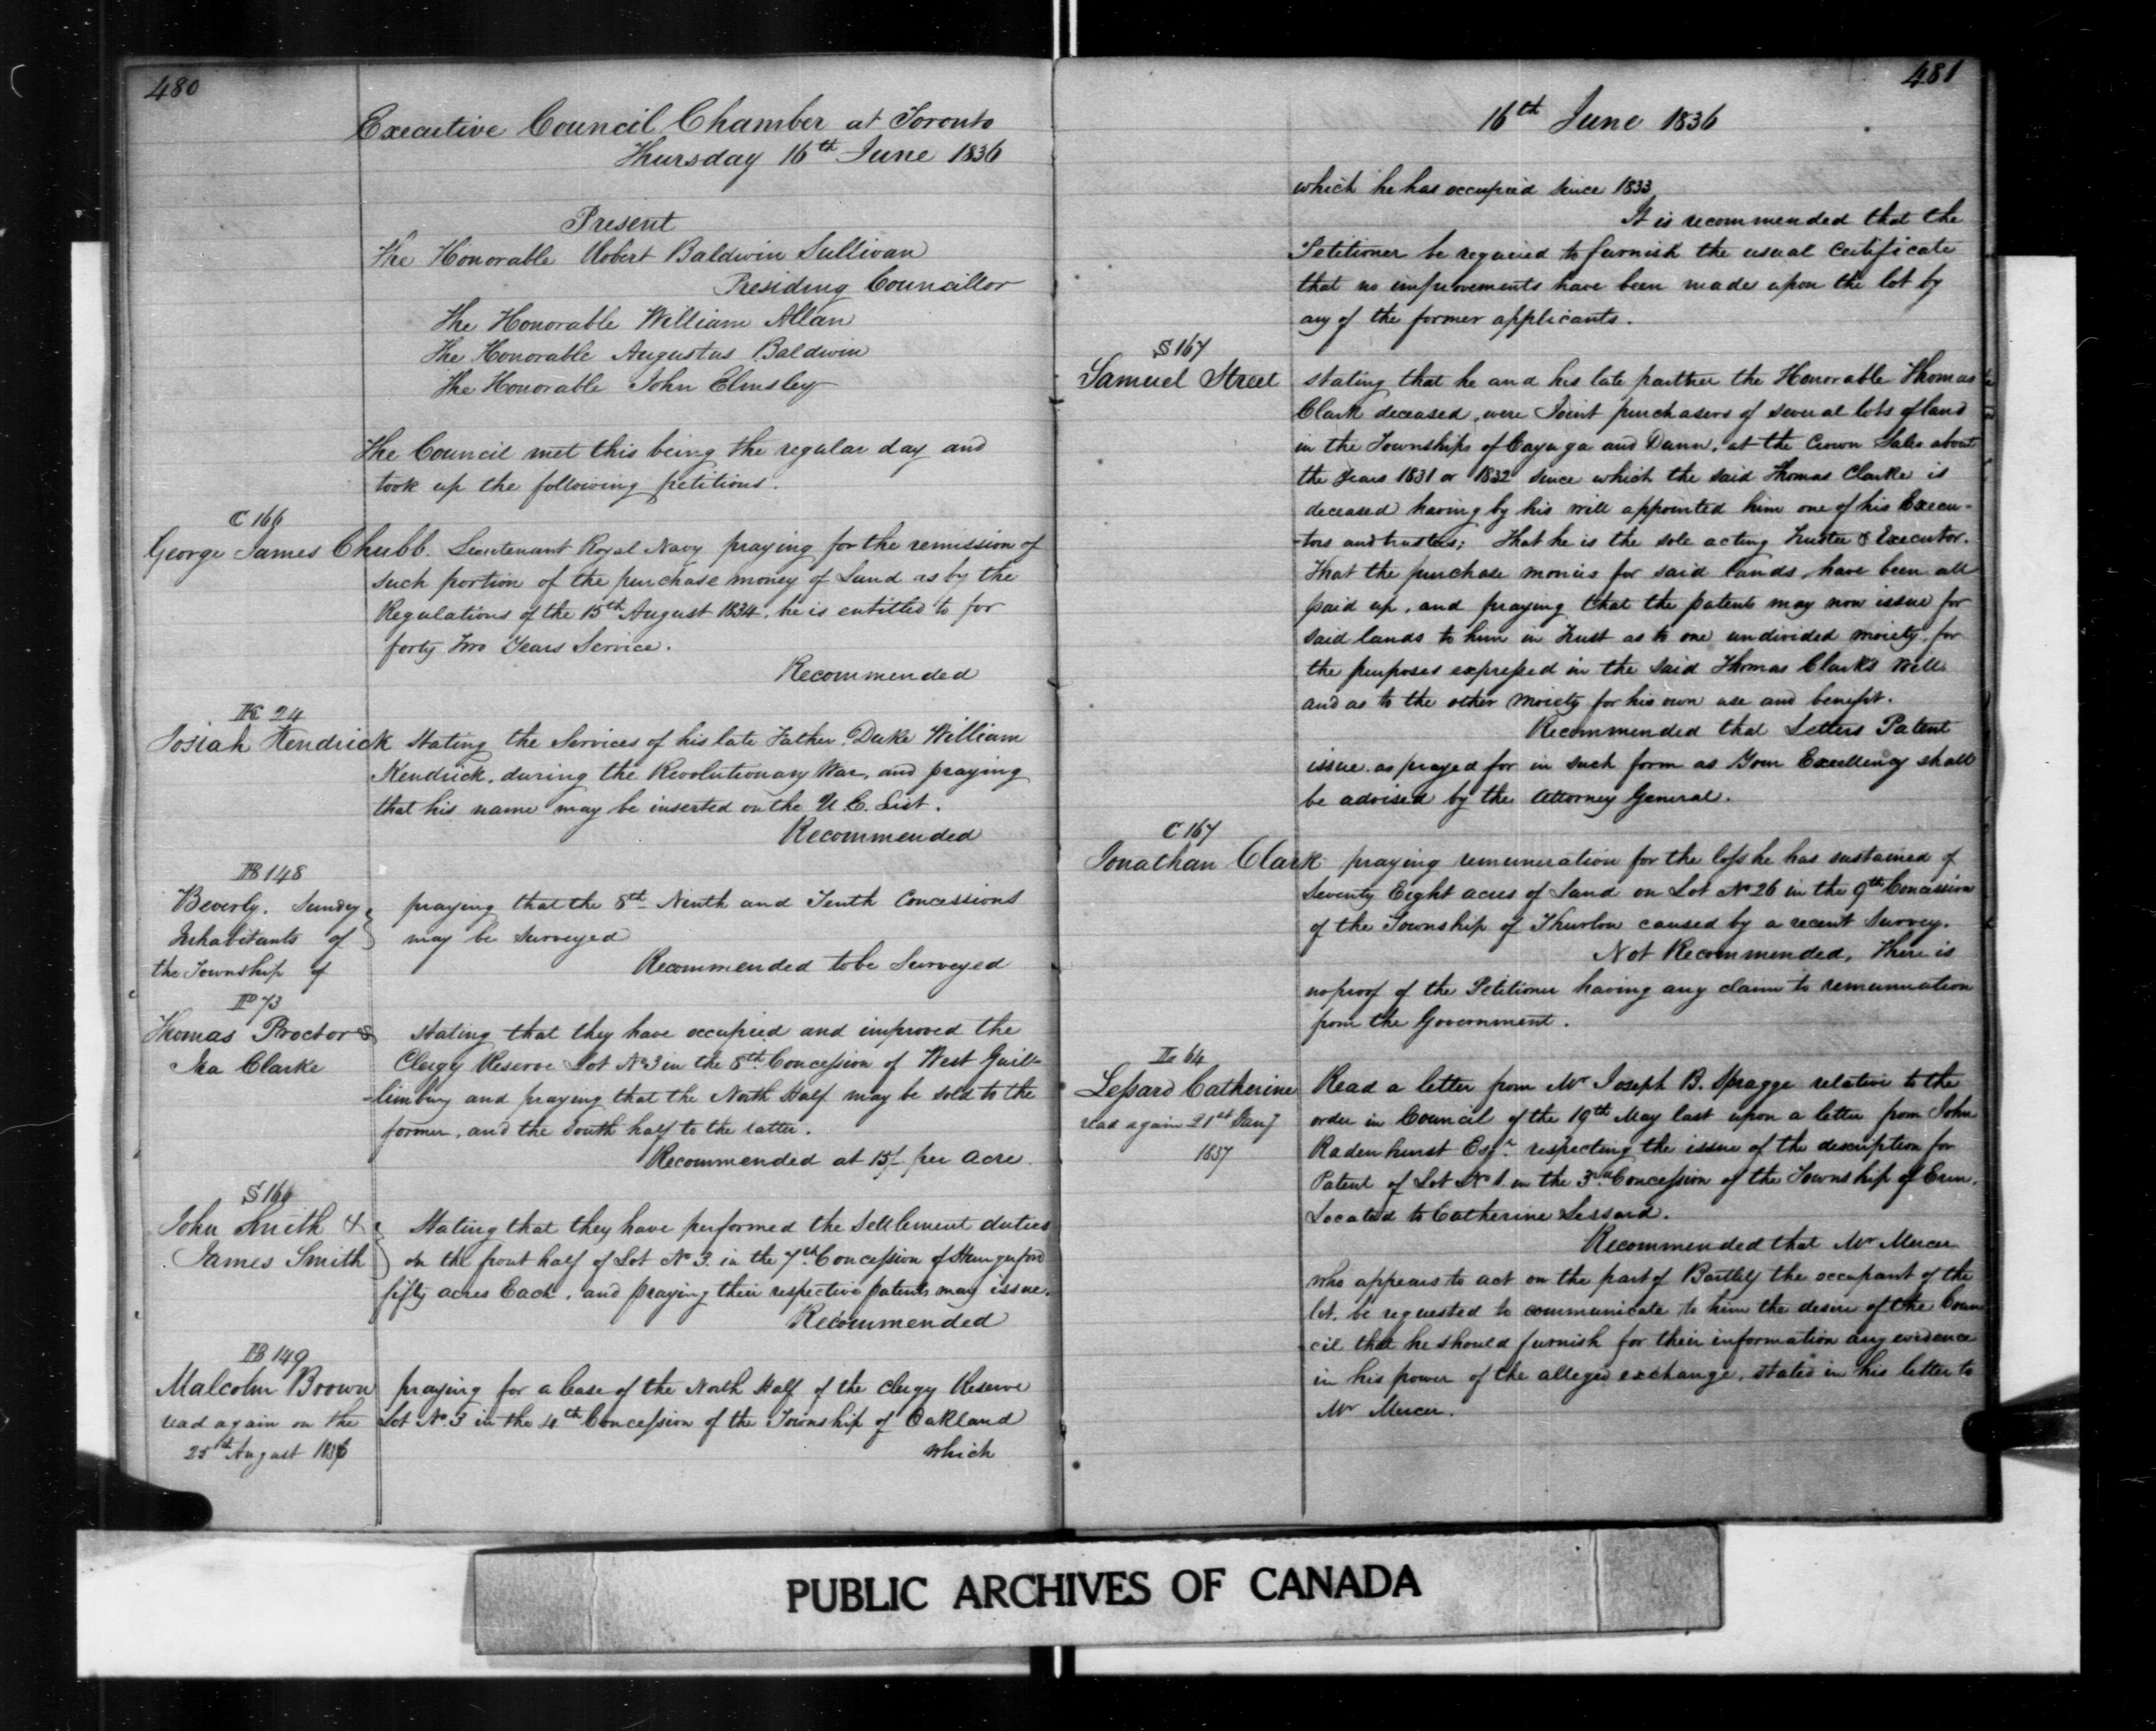 480
Executive Council Chamber at Toronto
Thursday 16th June 1836
Present
The Honorable Robert Baldwin Sullivan
Presiding Councillor
The Honorable William Allan
The Honorable Augustus Baldwin
The Honorable John Elmsley
The Council met this being the regular day and
took up the following petitions.
C 166
George James Chubb. Lieutenant Royal Navy praying for the remission of
such portion of the purchase money of Land as by the
Regulations of the 15th August 1834, he is entitled to for
forty two Years Service.
Recommended
K 24
Josiah Kendrick Stating the Services of his late Father Duke William
Kendrick, during the Revolutionary War, and praying
that his name may be inserted on the U.E. List.
Recommended
B 148
Beverly. Sundry praying that the 8th Ninth and Tenth Concessions
Inhabitants of may be Surveyed
the Township of Recommended to be Surveyed
P 73
Thomas Proctor & Stating that they have occupied and improved the
Ira Clarke Clergy Reserve Lot No 3 in the 8th Concession of West Guil-
-limbury and praying that the North Half may be sold to the
former, and the South half to the latter.
Recommended at 15/- per Acre.
S 166
John Smith & Stating that they have performed the Settlement duties
James Smith on the front half of Lot No 3. in the 7th Concession of Hungerford
fifty acres Each, and praying their respective patents may issue.
Recommended
B 149
Malcolm Brown praying for a lease of the North Half of the Clergy Reserve
read again on the Lot No. 3 in the 4th Concession of the Township of Oakland
25th August 1836 which
481
16th June 1836
which he has occupied since 1833
It is recommended that the
Petitioner be required to furnish the usual Certificate
that no improvements have been made upon the lot by
any of the former applicants.
S 167
Samuel Street stating that he and his late partner the Honorable Thomas
Clark deceased, were Joint purchasers of several lots of land
in the Townships of Cayuga and Dunn, at the Crown Sales about
the years 1831 or 1832 since which the said Thomas Clarke is
deceased having by his will appointed him one of his Execu-
-tors and trustees; That he is the sole acting Trustee & Executor.
That the purchase monies for said Lands, have been all
paid up, and praying that the patents may now issue for
said lands to him in Trust as to one undivided moiety, for
the purposes expressed in the said Thomas Clark's Will
and as to the other Moiety for his own use and benefit.
Recommended that Letters Patent
issue as prayed for in such form as Your Excellency shall
be advised by the Attorney General.
C 167
Jonathan Clark praying remuneration for the loss he has sustained of
Seventy Eight acres of Land on Lot No 26 in the 9th Concession
of the Township of Thurlow caused by a recent Survey.
Not Recommended, There is
no proof of the Petitioner having any claim to remuneration
from the Government.
L 64
Lessard Catherine Read a letter from Mr Joseph B. Spragge relative to the
read again 21st Jany order in Council of the 19th May last upon a letter from John
1837 Radenhurst Esqr. respecting the issue of the description for
Patent of Lot No 1. in the 3rd Concession of the Township of Erin,
Located to Catherine Lessard.
Recommended that Mr Mercer
who appears to act on the part of Bartley the occupant of the
lot, be requested to communicate to him the desire of the Coun
cil that he should furnish for their information any evidence
in his power of the alleged exchange, stated in his letter to
Mr Mercer.
PUBLIC ARCHIVES OF CANADA